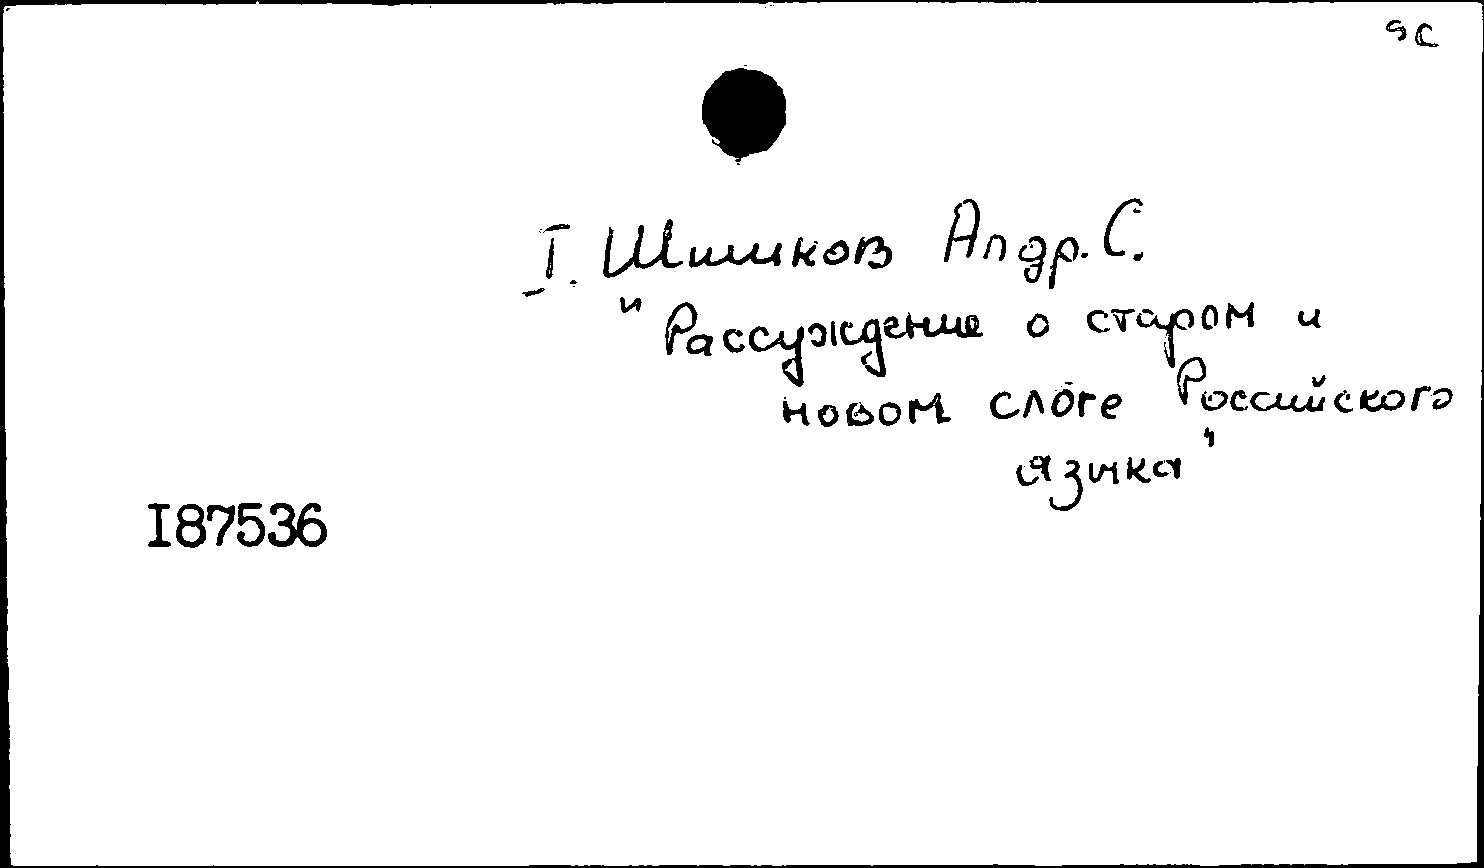 I. Шишков Андр. С.
"Рассуждение о старом и
новом слоге Российского
языка"
I87536